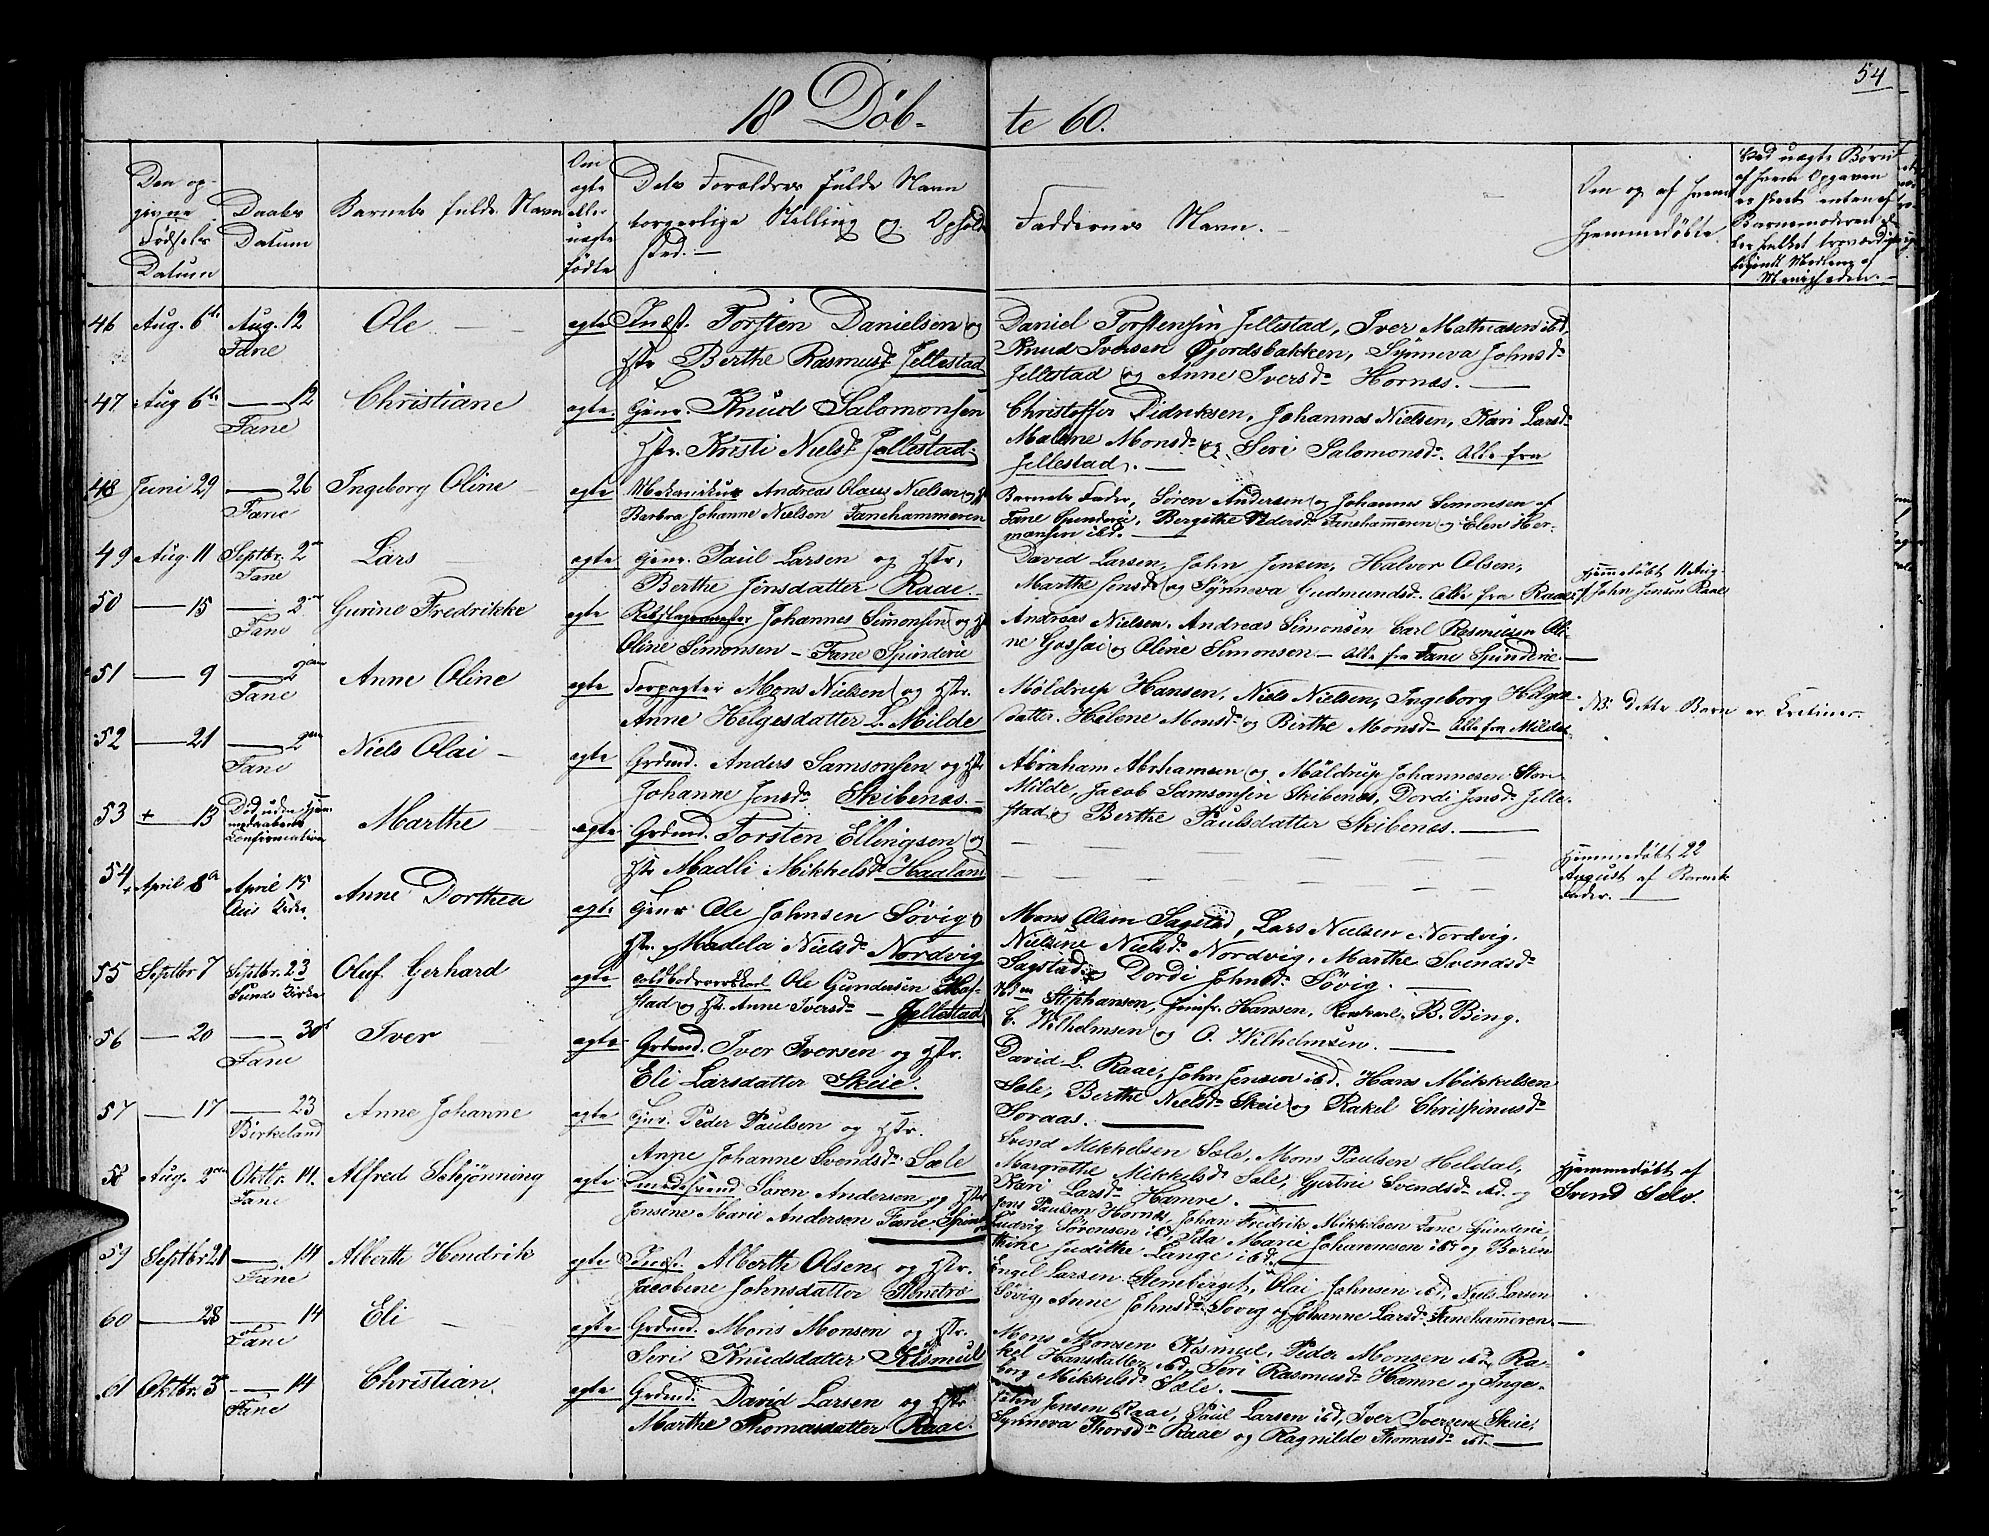 54
18 Døb-
te 60.
Den op-
givne
Fødsels
Datum
Daabs
Datum
Barnets fulde Navn
Om
ægte
eller
uægte
fødte
Dets Forældres fulde Navn
borgerlige Stilling og Opholds
sted. —
Faddernes Navn. —
Om og af hvem
hjemmedøbte.
Ved uægte Børn
af hvem Opgaven
er skeet enten af
Barnemoderen el-
ler hvilket troværdigt
Medlem af
Menigheden. —
46 Aug. 6te Aug. 12 Fane Ole — ægte Inds. Torsten Danielsen og
Hstr Berthe Rasmusd. Jellestad
Daniel Torstensen Jellestad, Iver Mathiasen ibd,
Knud Iversen Gjordsbakken, Synneva Johnsd.
Jellestad og Anne Iversd. Hornæs. —
47 Aug 6te — 12 Fane Christiane ægte Gjenr. Knud Salomonsen
Hstr. Kristi Nielsd. Jellestad.
Christoffer Didriksen, Johannes Nielsen, Kari Larsd.
Malene Monsd. og Seri Salomonsd. Alle fra
Jellestad. —
48 Juni 29 — 26 Fane Ingeborg Oline ægte Mekanikus Andreas Olaus Nielsen og H.
Barbra Johanne Nielsen Fanehammeren
Barnets Fader, Søren Andersen og Johannes Simonsen af
Fane Spinderie, Bergithe Pedersd. Fanehammeren og Elen Her-
mansen ibd. —
49 Aug. 11 Septbr. 2en Fane Lars — ægte Gjenr. Paul Larsen og Hstr.
Berthe Jensdatter Raae. —
David Larsen, John Jensen, Halvor Olsen,
Marthe Jensd. og Synneva Gudmundsd. Alle fra Raae.
Hjemmedøbt 11 Aug.
af John Jensen Raae
50 — 15 — 2en Fane Gurine Fredrikke ægte Johannes Simonsen og H
Oline Simonsen — Fane Spinderie
Andreas Nielsen. Andreas Simonsen Carl Rasmussen Oli-
ne Gasjai og Oline Simonsen — Alle fra Fane Spinderie. —
51 — 9 — 2en Fane Anne Oline ægte Forpagter Mons Nielsen og Hstr.
Anne Helgesdatter L. Milde
Møldrup Hansen, Niels Nielsen, Ingeborg Helges-
datter. Helene Monsd. og Birthe Monsd — Alle fra Milde.
NB. Dette Barn er
52 — 21 — 2en Fane Niels Olai — ægte Grdmd. Anders Samsonsen og Hstr
Johanne Jensd. Skibenes. —
Abraham Abrhamsen og Møldrup Johannesen Store
Milde, Jacob Samsonsen Skibenes, Dordi Jensd. Jelle-
stad og Berthe Paulsdatter Skibenes. —
53 + — 13 Død uden Hjem-
medaabens
Confirmation Marthe ægte Grdmd. Torsten Ellingsen og
Hstr Madli Mikkelsd. Haaland
— — — — — —
Hjemmedøbt 22
August af Barnets
Fader. —
54 April 8de April 15 Ous Kirke. Anne Dorthea ægte Gjenr Ole Johnsen Søvig og
Hstr. Madela Nielsd. Nordvig
Mons Olsen Sagstad, Lars Nielsen Nordvig.
Nielsine Nielsd. Nordvig, Marthe Svendsd.
Sagstad og Dordi Johnsd. Søvig. —
55 Septbr 7 Septbr. 23 Sunds Kirke Oluf Gerhard ægte Ole Gundersen Møs-
stad og Hstr. Anne Iversd. — Jellestad
Stephansen, Jomfr. Hansen, B. Bing.
C. Wilhelmsen og O. Wilhelmsen. —
56 — 20 — 30te Fane Iver ægte Grdmd. Iver Iversen og Hstr.
Eli Larsdatter Skeie.
David L. Raae, John Jensen ibd. Hans Mikkelsen
Sæle, Berthe Nielsd. Skeie og Rakel Chrispinusd.
Soraas. —
57 — 17 — 23 Birkeland Anne Johanne ægte Gjnr. Peder Paulsen og Hstr.
Anne Johanne Svendsd. Sæle
Svend Mikkelsen Sæle, Mons Paulsen Heldal,
Margrethe Mikkelsd. Sæle, Gjertrue Svendsd. ibd. og
Kari Larsd. Hamre. —
Hjemmedøbt af
Svend Sæle.
58 Aug. 2en Oktbr. 14. Fane Alfred Schjønning ægte Smedesvend Søren Andersen og Hstr
Jensine Marie Andersen Fane Spind.
Jens Paulsen Hornes, Johan Fredrik Mikkelsen Fane Spinderie,
Ludvig Sørensen ibd, Ida Marie Johannesen ibd og Beren-
thine Judithe Lange ibd. —
59 Septbr 21 — 14 Fane Alberth Hendrik ægte Inds. Alberth Olsen og Hstr.
Jacobine Johnsdatter Stentræ
Engel Larsen Steneberget, Olai Johnsen ibd, Niels Larsen
Søvig, Anne Johnsd. Søvig og Johanne Larsd. Fanehammeren. —
60 — 28 — 14 Fane Eli — ægte Grdmd. Mons Monsen og Hstr.
Seri Knudsdatter Kismul
Mons Monsen Kismul, Peder Monsen ibd, Ra-
kel Hansdatter ibd, Seri Rasmusd. Hamre og Inge-
borg Mikkelsd. Sæle. —
61 Oktbr. 3 — 14 Fane Christian. ægte Grdmd. David Larsen og Hstr
Marthe Thomasdatter Raae.
Jensen Raae, Paul Larsen ibd, Iver Iversen Skeie,
Synneva Thorsd. Raae og Ragnilde Thomasd. ibd. —